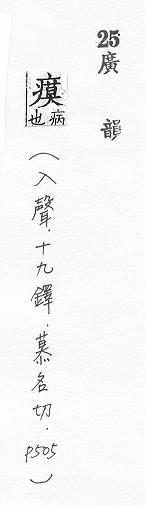 25廣韻
瘼病也
(入聲.十九鐸.慕各切.P505)